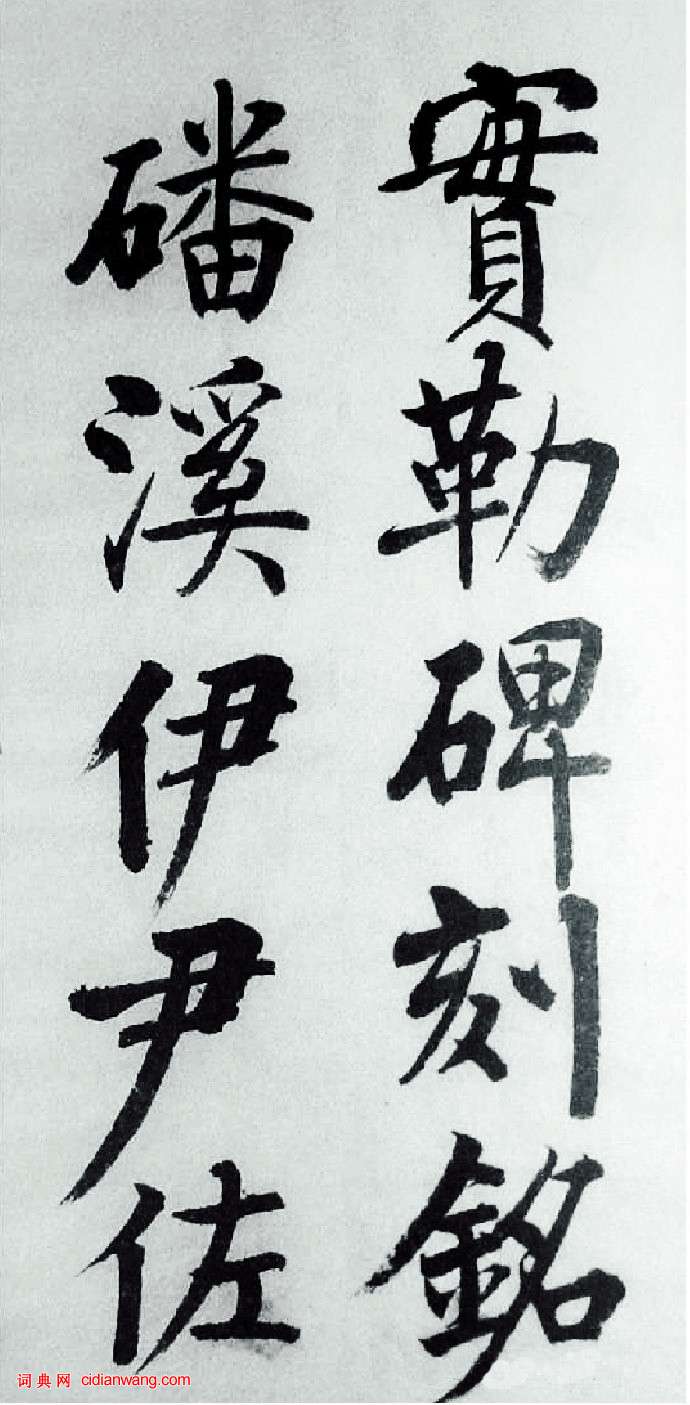 實勒碑刻銘
磻溪伊尹佐
词典网 cidianwang.com